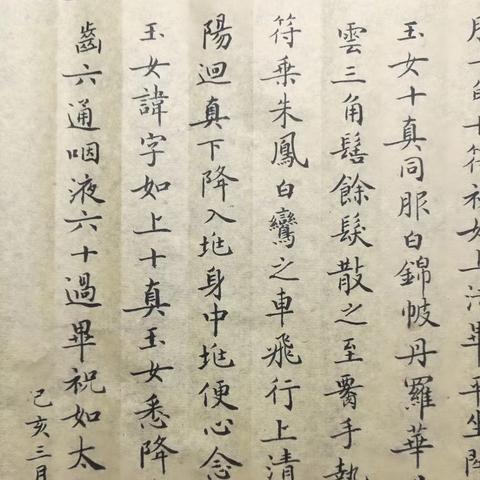 一旬十符祝如上法畢平坐閉
玉女十真同服白錦帔丹羅華
雲三角髻餘髮散之至腰手執
符乘朱鳳白鸞之車飛行上清
陽迴真下降入兆身中兆便心念
玉女諱字如上十真玉女悉降
齒六通咽液六十過畢祝如太
己亥三月